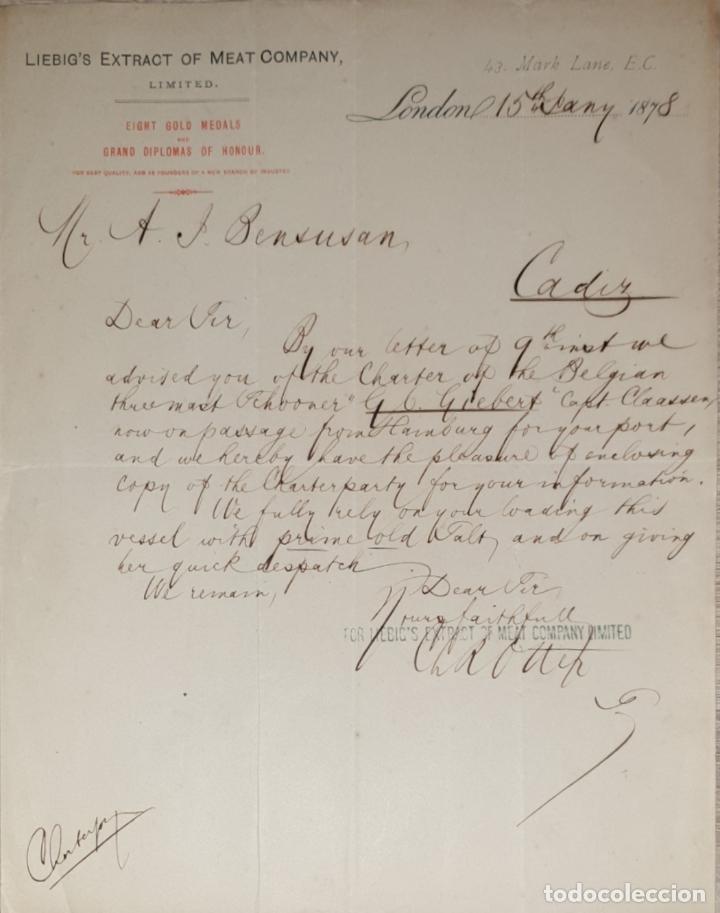 LIEBIG'S EXTRACT OF MEAT COMPANY,
LIMITED.
EIGHT GOLD MEDALS
AND
GRAND DIPLOMAS OF HONOUR.
FOR BEST QUALITY, AND AS FOUNDERS OF A NEW BRANCH OF INDUSTRY
43. Mark Lane, E.C.
London 15th Jany 1878
Mr. A. J. Bensusan,
Cadiz
Dear Sir,
By our letter of 9th inst we
advised you of the Charter of the Belgian
three mast Schooner "G. C. Giebert" Capt. Claassen,
now on passage from Hamburg for your port,
and we hereby have the pleasure of enclosing
copy of the Charterparty for your information.
We fully rely on your loading this
vessel with prime old Salt, and on giving
her quick despatch
We remain,
Dear Sir,
Yours faithfull
FOR LIEBIG'S EXTRACT OF MEAT COMPANY LIMITED
todocoleccion